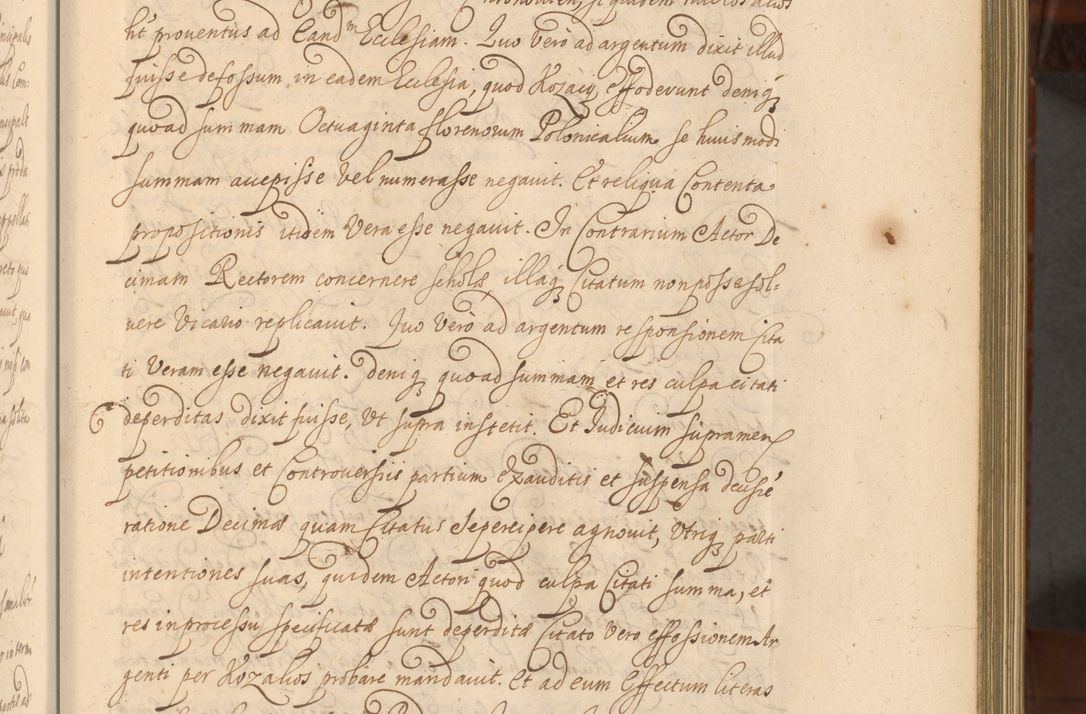 ht proventus ad Eand.m Ecclesiam. Quo vero ad argentum dixit illud
fuisse defossum in eadem Ecclesia, quod Kozacy effoderunt deniq,
quoad summam Octuaginta florenorum Polonicalium se huiusmodi
summam accepisse vel numerasse negauit. Et reliqua Contenta
propositionis itidem Vera esse negauit. In Contrarium Actor De
cimam Rectorem concernere scholæ, illaq, Citatum non posse sol-
uere Vicario replicauit. Quo Vero ad argentum responsionem Cita
ti Veram esse negauit. deniq, quoad summam et res culpa citati
deperditas dixit fuisse, Vt supra institit. Et Iudicium supramen
petitionibus et Controversiis partium exauditis et suspensa decisie
ratione Decimæ quam Citatus se percipere agnouit, Vtriq, parti
intentiones suas, quidem Actori quod culpa Citati summa, et
res in processu specificatæ sunt deperditæ Citato Vero effossionem Ar
genti per Kozakos probare mandauit. Et ad eum Effectum literas